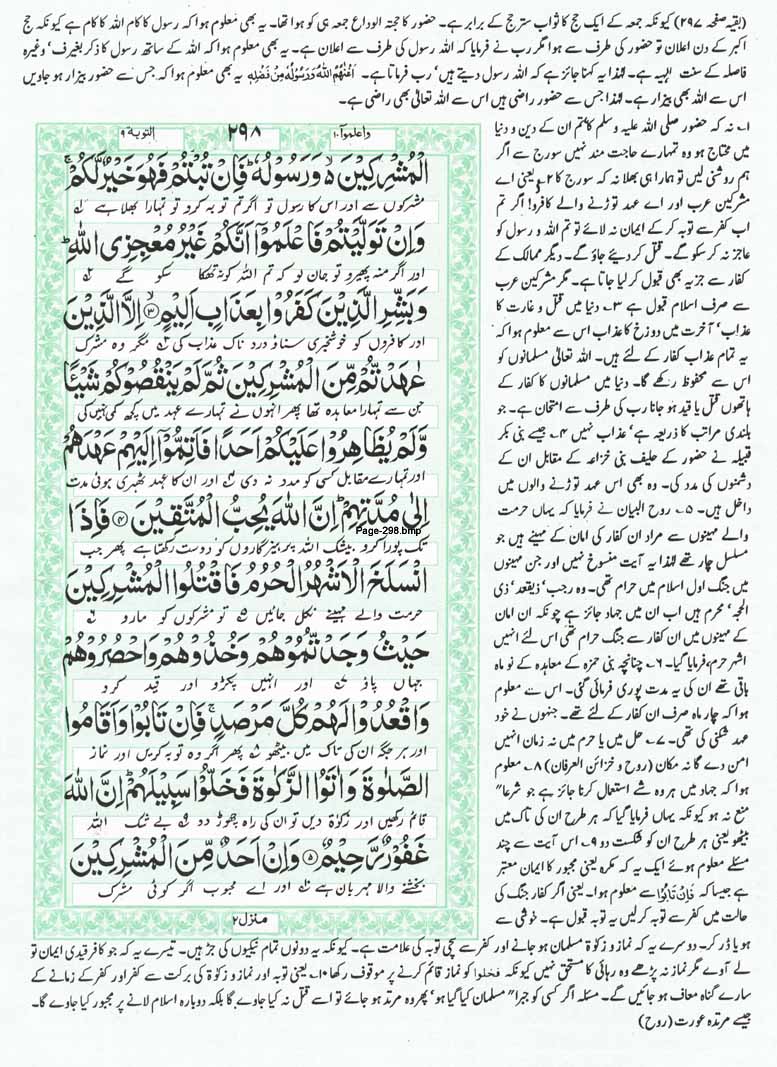 (بقیہ صفحہ ۲۹۷) کیونکہ جمعہ کے ایک حج کا ثواب ستر حج کے برابر ہے۔ حضور کا حجتہ الوداع جمعہ ہی کو ہوا تھا۔ یہ بھی معلوم ہوا کہ رسول کا کام اللہ کا کام ہے کیونکہ حج
اکبر کے دن اعلان تو حضور کی طرف سے ہوا مگر رب نے فرمایا کہ اللہ رسول کی طرف سے اعلان ہے۔ یہ بھی معلوم ہوا کہ اللہ کے ساتھ رسول کا ذکر بغیر ف' وغیرہ
فاصلہ کے سنت الہیہ ہے۔ لہٰذا یہ کہنا جائز ہے کہ اللہ رسول دیتے ہیں' رب فرماتا ہے۔ اَغْنٰهُمُ اللهُ وَرَسُوْلُهٗ مِنْ فَضْلِهٖ یہ بھی معلوم ہوا کہ جس سے حضور بیزار ہو جاویں
اس سے اللہ بھی بیزار ہے۔ لہٰذا جس سے حضور راضی ہیں اس سے اللہ تعالیٰ بھی راضی ہے۔
واعلموآ۱۰
۲۹۸
التوبة ۹
الْمُشْرِكِيْنَ ۙ۬ وَ رَسُوْلُهٗ ؕ فَاِنْ تُبْتُمْ فَهُوَ خَيْرٌ لَّكُمْ ۚ
مشرکوں سے اور اس کا رسول تو اگر تم توبہ کرو تو تمہارا بھلا ہے
وَاِنْ تَوَلَّيْتُمْ فَاعْلَمُوْۤا اَنَّكُمْ غَيْرُ مُعْجِزِی اللهِ ؕ
اور اگر منہ پھیرو تو جان لو کہ تم اللہ کو نہ تھکا سکو گے
وَ بَشِّرِ الَّذِيْنَ كَفَرُوْا بِعَذَابٍ اَلِيْمٍ ۙ﴿۳﴾ اِلَّا الَّذِيْنَ
اور کافروں کو خوشخبری سناؤ درد ناک عذاب کی مگر وہ مشرک
عٰهَدْتُّمْ مِّنَ الْمُشْرِكِيْنَ ثُمَّ لَمْ يَنْقُصُوْكُمْ شَيْـًٔا
جن سے تمہارا معاہدہ تھا پھر انہوں نے تمہارے عہد میں کچھ کمی نہیں کی
وَّلَمْ يُظَاهِرُوْا عَلَيْكُمْ اَحَدًا فَاَتِمُّوْۤا اِلَيْهِمْ عَهْدَهُمْ
اور تمہارے مقابل کسی کو مدد نہ دی تو ان کا عہد ٹھہری ہوئی مدت
اِلٰی مُدَّتِهِمْ ؕ اِنَّ اللهَ يُحِبُّ الْمُتَّقِيْنَ ﴿۴﴾ فَاِذَا
Page-298.bmp
تک پورا کرو بیشک اللہ پرہیزگاروں کو دوست رکھتا ہے پھر جب
انْسَلَخَ الْاَشْهُرُ الْحُرُمُ فَاقْتُلُوا الْمُشْرِكِيْنَ
حرمت والے مہینے نکل جائیں تو مشرکوں کو مارو
حَيْثُ وَجَدْتُّمُوْهُمْ وَخُذُوْهُمْ وَاحْصُرُوْهُمْ
جہاں پاؤ اور انہیں پکڑو اور قید کرو
وَاقْعُدُوْا لَهُمْ كُلَّ مَرْصَدٍ ۚ فَاِنْ تَابُوْا وَاَقَامُوا
اور ہر جگہ ان کی تاک میں بیٹھو پھر اگر وہ توبہ کریں اور نماز
الصَّلٰوةَ وَاٰتَوُا الزَّكٰوةَ فَخَلُّوْا سَبِيْلَهُمْ ؕ اِنَّ اللهَ
قائم رکھیں اور زکوٰۃ دیں تو ان کی راہ چھوڑ دو بے شک اللہ
غَفُوْرٌ رَّحِيْمٌ ﴿۵﴾ وَاِنْ اَحَدٌ مِّنَ الْمُشْرِكِيْنَ
بخشنے والا مہربان ہے اور اے محبوب اگر کوئی مشرک
منزل ۲
۱۔ نہ کہ حضور صلی اللہ علیہ وسلم کا' تم ان کے دین و دنیا
میں محتاج ہو وہ تمہارے حاجت مند نہیں سورج سے اگر
ہم روشنی لیں تو ہمارا ہی بھلا نہ کہ سورج کا ۲۔ یعنی اے
مشرکین عرب اور اے عہد توڑنے والے کافرو! اگر تم
اب کفر سے توبہ کر کے ایمان نہ لائے تو تم اللہ و رسول کو
عاجز نہ کر سکو گے۔ قتل کر دیئے جاؤ گے۔ دیگر ممالک کے
کفار سے جزیہ بھی قبول کر لیا جاتا ہے۔ مگر مشرکین عرب
سے صرف اسلام قبول ہے ۳۔ دنیا میں قتل و غارت کا
عذاب' آخرت میں دوزخ کا عذاب اس سے معلوم ہوا کہ
یہ تمام عذاب کفار کے لئے ہیں۔ اللہ تعالیٰ مسلمانوں کو
اس سے محفوظ رکھے گا۔ دنیا میں مسلمانوں کا کفار کے
ہاتھوں قتل یا قید ہو جانا رب کی طرف سے امتحان ہے۔ جو
بلندی مراتب کا ذریعہ ہے' عذاب نہیں ۴۔ جیسے بنی بکر
قبیلہ نے حضور کے حلیف بنی خزاعہ کے مقابل ان کے
دشمنوں کی مدد کی۔ وہ بھی اس عہد توڑنے والوں میں
داخل ہیں۔ ۵۔ روح البیان نے فرمایا کہ یہاں حرمت
والے مہینوں سے مراد ان کفار کی امان کے مہینے ہیں جو
مسلسل چار تھے لہٰذا یہ آیت منسوخ نہیں اور جن مہینوں
میں جنگ اول اسلام میں حرام تھی۔ وہ رجب' ذیقعد' ذی
الحجہ' محرم ہیں اب ان میں جہاد جائز ہے چونکہ ان امان
کے مہینوں میں ان کفار سے جنگ حرام تھی اس لئے انہیں
اشہر حرم' فرمایا گیا۔ ۶۔ چنانچہ بنی حمزہ کے معاہدہ کے نو ماہ
باقی تھے ان کی یہ مدت پوری فرمائی گئی۔ اس سے معلوم
ہوا کہ چار ماہ صرف ان کفار کے لئے تھے۔ جنہوں نے خود
عہد شکنی کی تھی۔ ۷۔ حل میں یا حرم میں نہ زمان انہیں
امن دے گا نہ مکان (روح و خزائن العرفان) ۸۔ معلوم
ہوا کہ جہاد میں ہر وہ شے استعمال کرنا جائز ہے جو شرعا"
منع نہ ہو کیونکہ یہاں فرمایا گیا کہ ہر طرح ان کی تاک میں
بیٹھو یعنی ہر طرح ان کو شکست دو ۹۔ اس آیت سے چند
مسئلے معلوم ہوئے ایک یہ کہ مکرہ یعنی مجبور کا ایمان معتبر
ہے جیسا کہ فَاِنْ تَابُوْا سے معلوم ہوا۔ یعنی اگر کفار جنگ کی
حالت میں کفر سے توبہ کر لیں یہ توبہ قبول ہے۔ خوشی سے
ہو یا ڈر کر۔ دوسرے یہ کہ نماز و زکوٰۃ مسلمان ہو جانے اور کفر سے سچی توبہ کی علامت ہے۔ کیونکہ یہ دونوں تمام نیکیوں کی جڑ ہیں۔ تیسرے یہ کہ جو کافر قیدی ایمان تو
لے آوے مگر نماز نہ پڑھے وہ رہائی کا مستحق نہیں کیونکہ فخلوا کو نماز قائم کرنے پر موقوف رکھا ۱۰۔ یعنی توبہ اور نماز و زکوٰۃ کی برکت سے کفر اور کفر کے زمانے کے
سارے گناہ معاف ہو جائیں گے۔ مسئلہ اگر کسی کو جبرا" مسلمان کیا گیا ہو' پھر وہ مرتد ہو جائے تو اسے قتل نہ کیا جاوے گا بلکہ دوبارہ اسلام لانے پر مجبور کیا جاوے گا۔
جیسے مرتدہ عورت (روح)